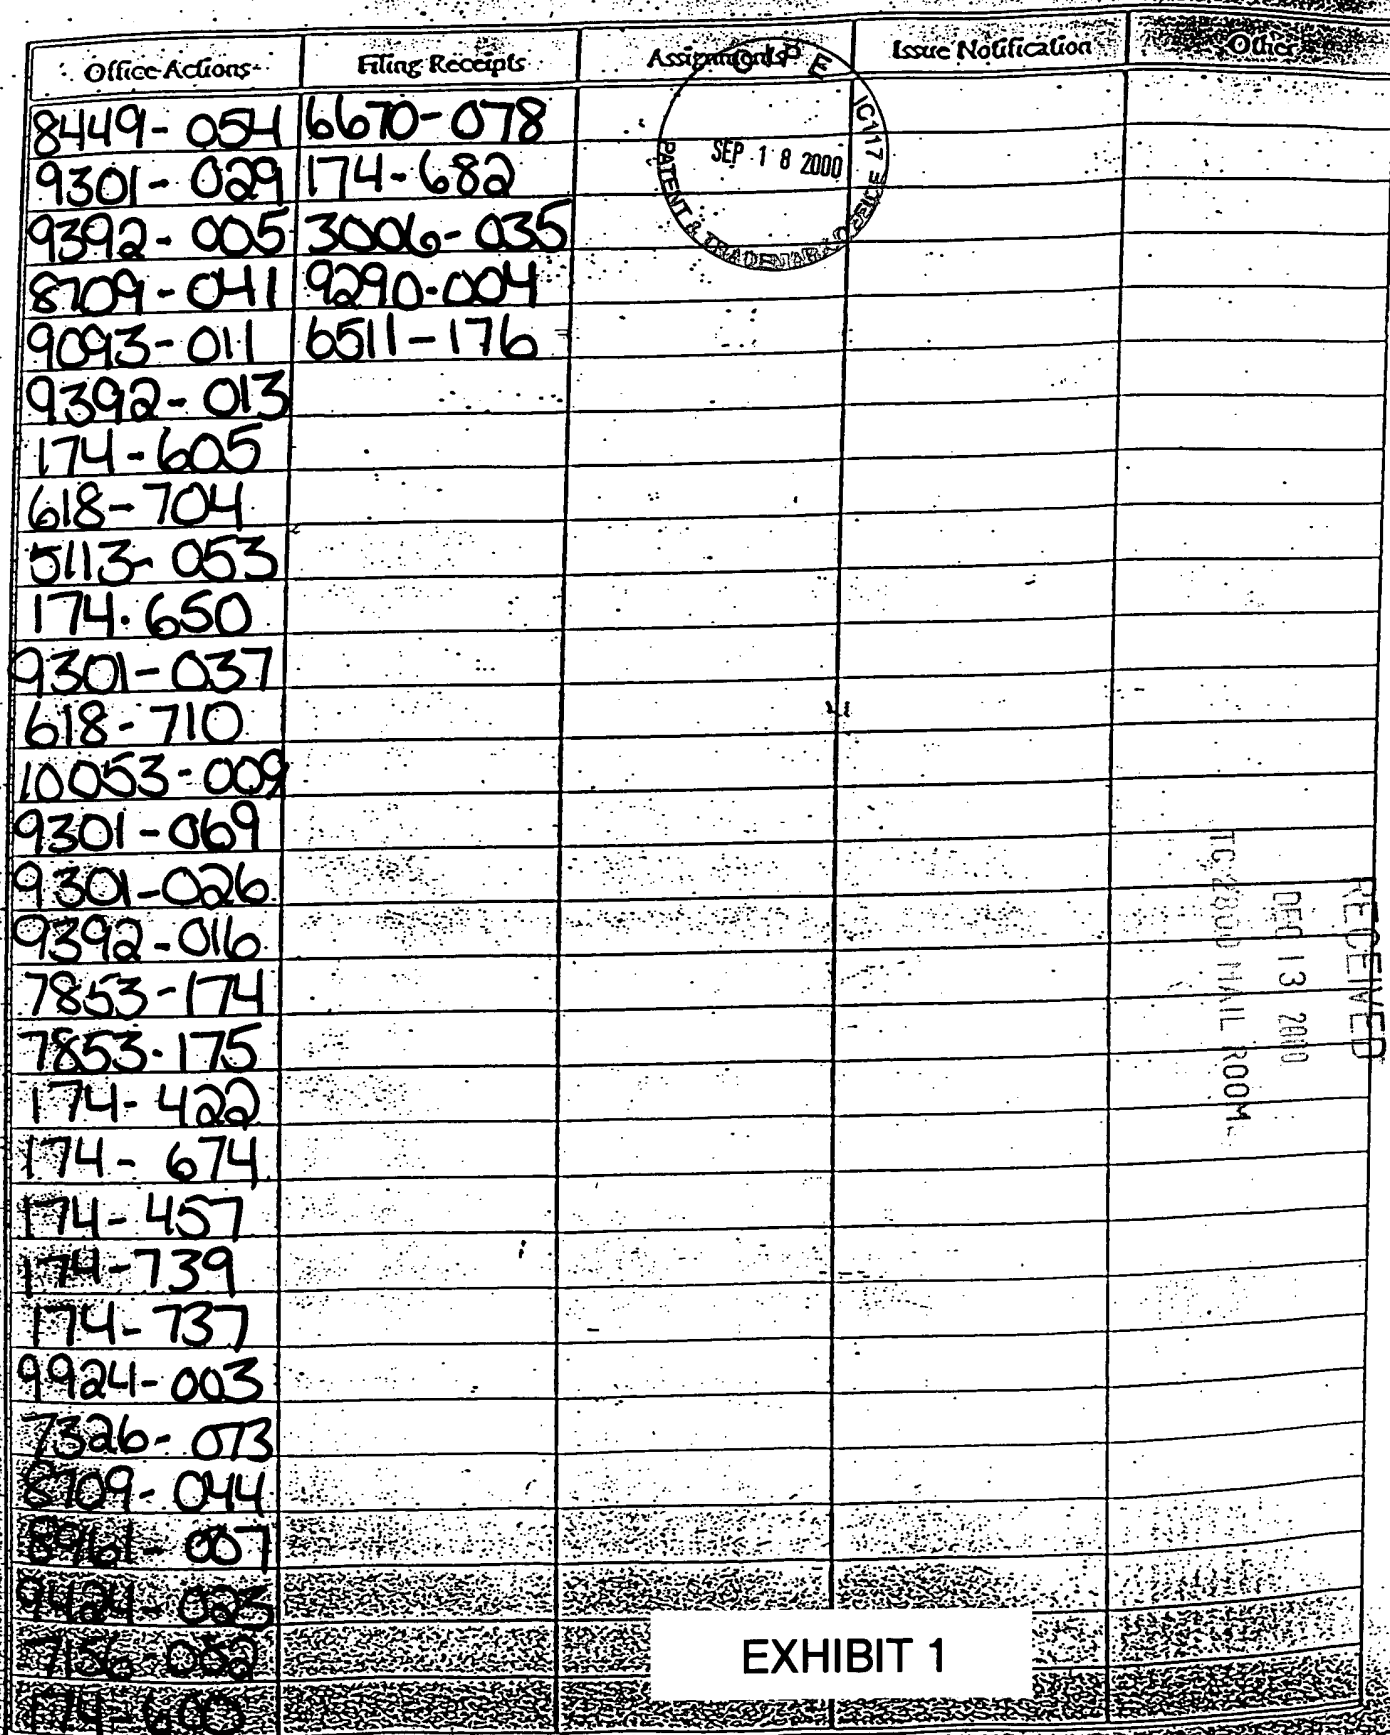 Office Actions Filing Receipts Assignments Issue Notification Other
8449-054 6670-078
9301-029 174-682
9392-005 3006-035
8709-041 9290-004
9093-011 6511-176
9392-013
174-605
618-704
5113-053
174-650
9301-037
618-710
10053-009
9301-069
9301-026
9392-016
7853-174
7853-175
174-422
174-674
174-457
174-739
174-737
9924-003
7326-073
8709-044
8961-007
9424-023
7156-052
174-600
OIPE
SEP 18 2000
PATENT & TRADEMARK OFFICE
RECEIVED
DEC 13 2000
TC 2800 MAIL ROOM
EXHIBIT 1